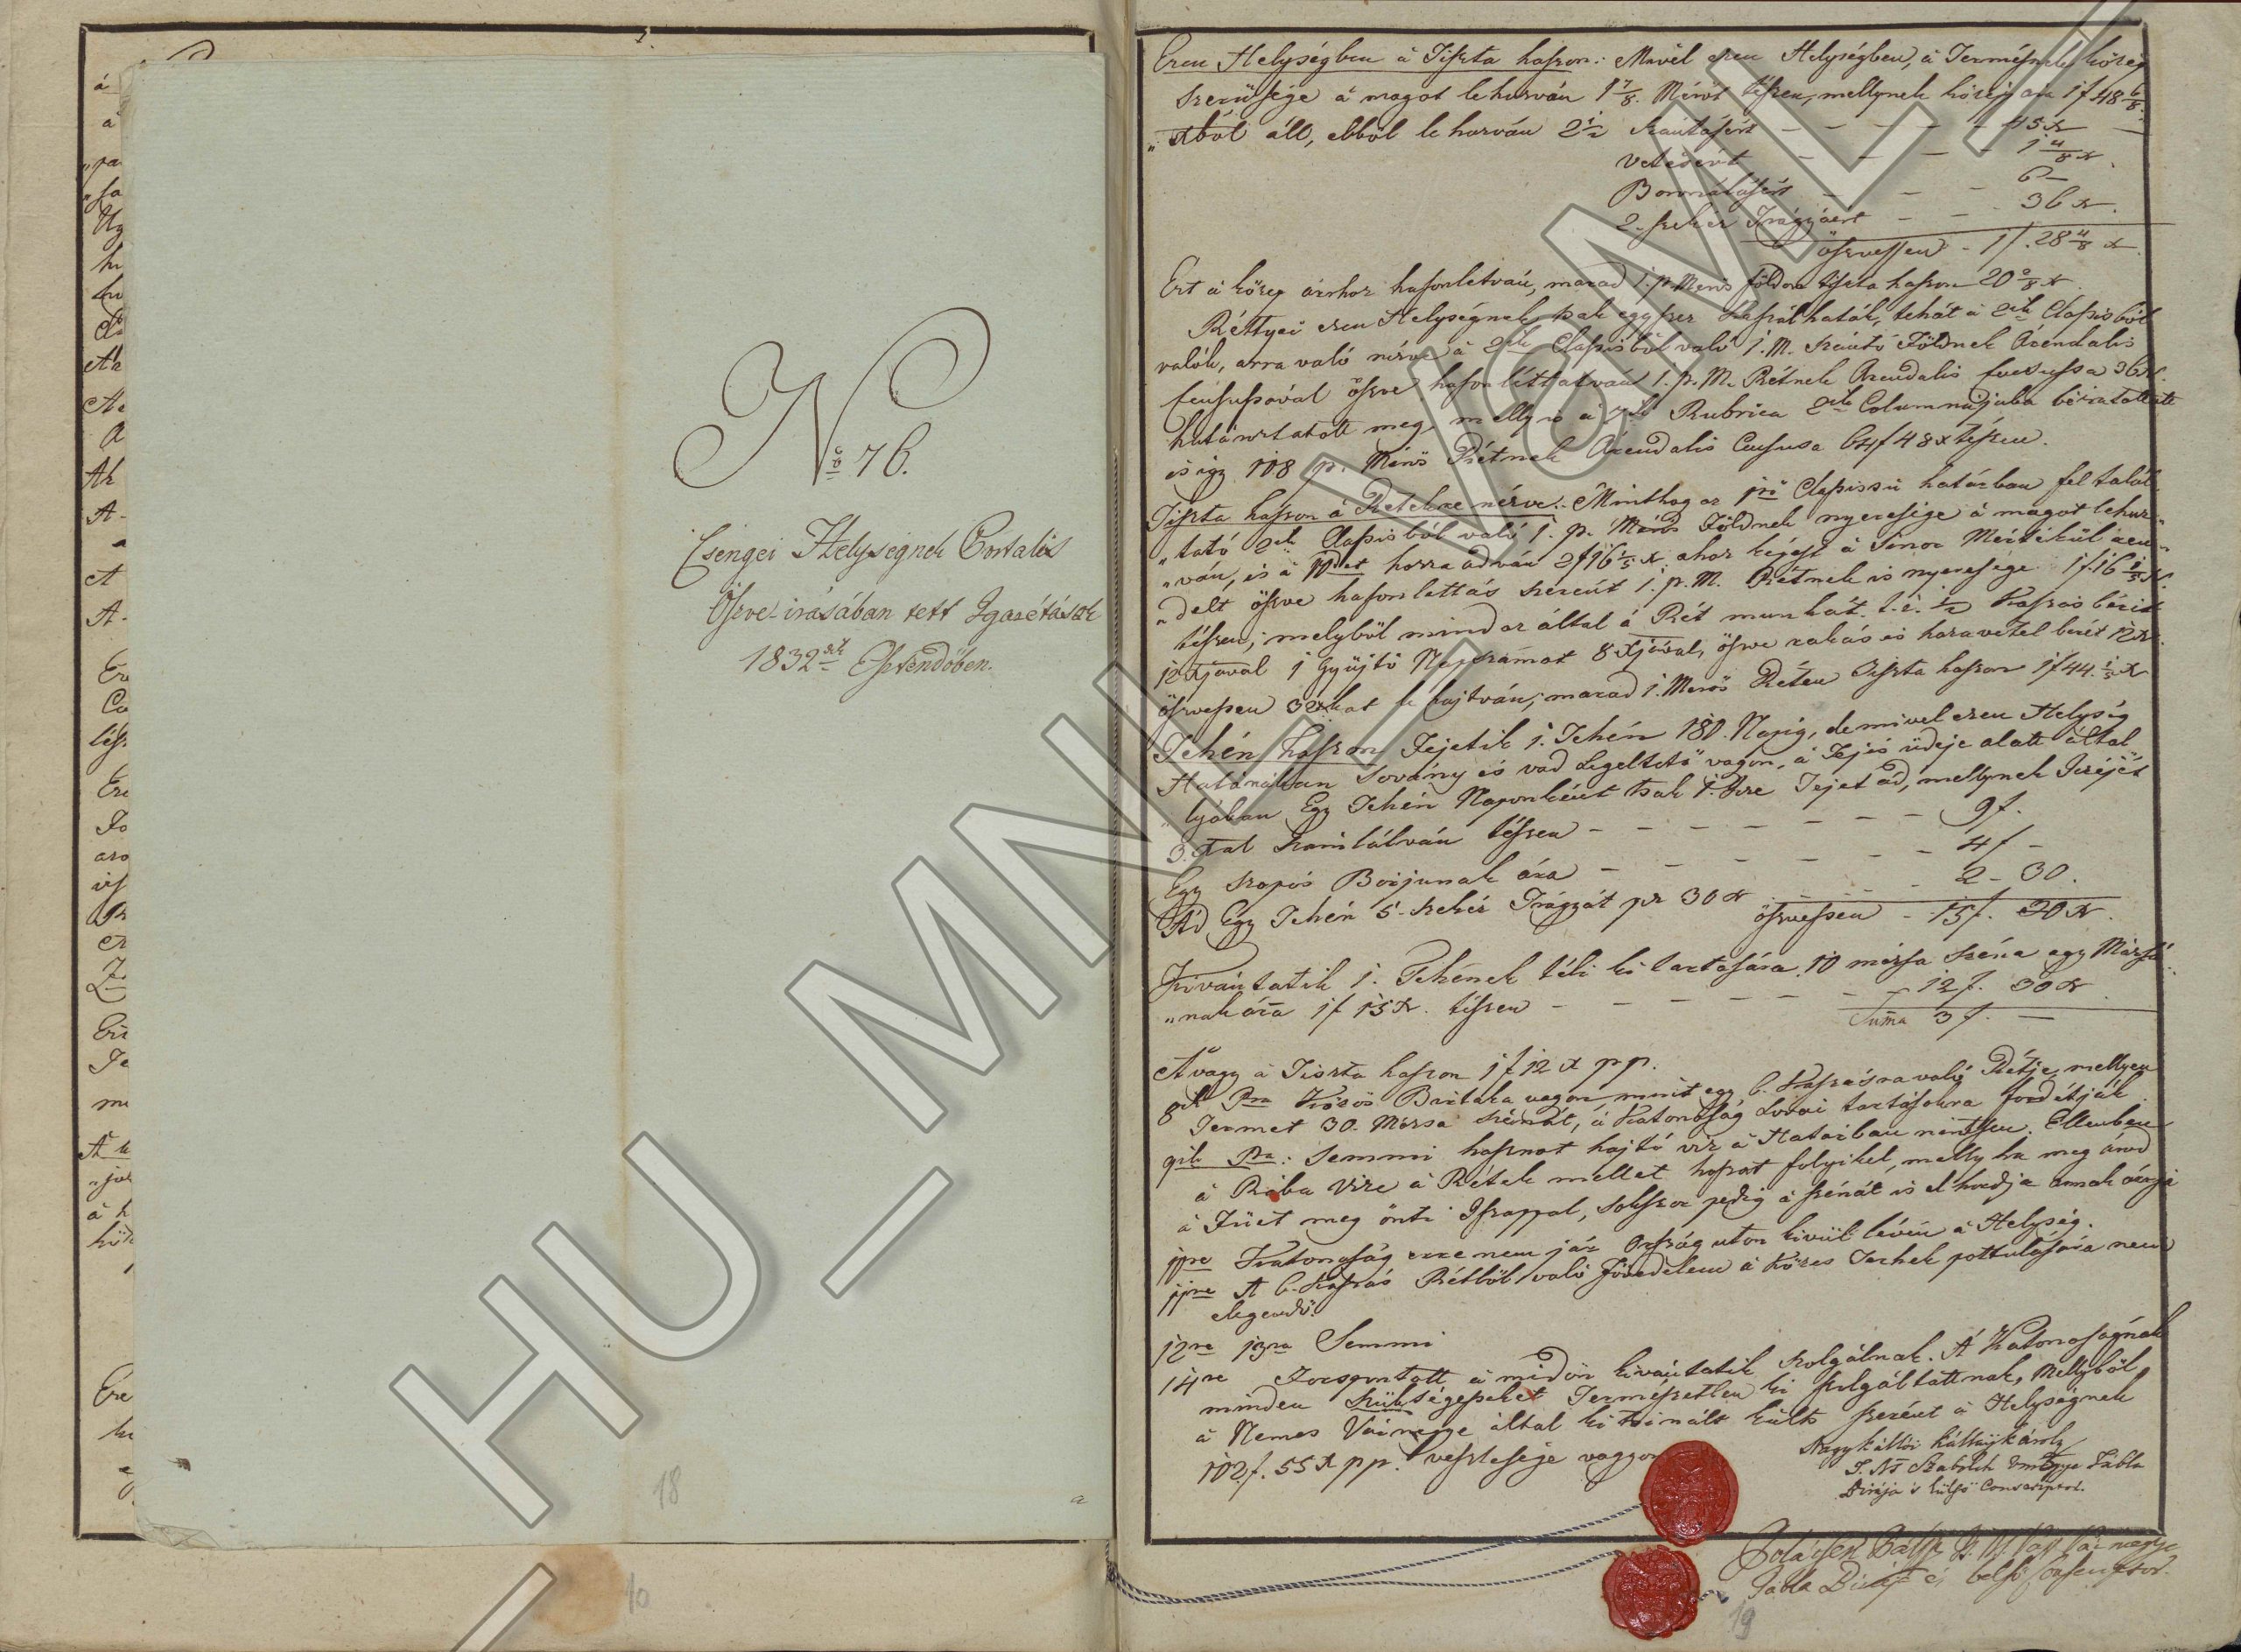 No 76.
Csengei Helységnek Portalis
Öszve-irásában tett Igazétások
1832ik Esztendőben.
18
10
Ezen Helységben á Tiszta haszon: Mivel ezen Helységben, á Termésnek közép
szerüsége á magot lehuzván 1 7/8 Mérőt tészen, mellynek közép ára 1f 48 6/8
"xból áll, ebből le huzván 2 1/2 Szántásért – – – – 45x –
Vetésért – – – – 1 4/8 x.
Boronálásért – – – 6 –
2. szekér Trágyáért – – – 36 x.
öszvessen – 1f. 28 4/8 x.
Ezt á közép árrhoz hasonlétván, marad 1. p. Mérős földön tiszta haszon 20 2/8 x.
Réttyei ezen Helységnek tsak egyszer kaszálhatók, tehát á 2ik Classisból
valók, arra való nézve á 2ik Classisból való 1. M. Szántó Földnek Árendalis
Censussával öszve hasonléttatván 1. p. M. Rétnek Arendalis Censussa 36x.
határoztatott meg melly is á 7ik Rubrica 2ik Columnájába béiratott
és igy 108 p. Mérős Rétnek Arendalis Censusa 64f 48x tészen.
Tiszta haszon á Retekre nézve: Minthogy az 1ső Classissú határban feltalál-
"tató 2ik Classisból való 1. p. Mérős Földnek nyeresége á magot lehuz-
"ván, és á 10det hozza adván 2f 16 1/5 x. ahoz képest á Sinor Mértékül ren-
"delt öszve hasonlettás szerént 1. p. M. Rétnek is nyeresége 1f. 16 1/5 x.
tészen; melyböl mind az által á Rét munkát. t. i. 1/2 Kaszás bérit
12xjával 1 Gyüjtő Napszámot 8xjával, öszve rakás és hazavetel berét 12x.
öszvessen 32xkat le hajtván, marad 1. Merős Réten Tiszta haszon 1f 44. 1/5 x
Tehén haszon Fejetik 1. Tehén 180. Napig, de mivel ezen Helység
Határában Sovány és vad Legeltető vagon, á Fejős üdeje alatt által
"lyában Egy Tehén Naponként tsak 1. Itze Tejet ád, mellynek Itzéjét
3. xral Számlálván tészen – – – – – – – 9f.
Egy szopós Borjunak ára – – – – – – – 4f –
Ád Egy Tehén 5. szekér Trágyát pr 30x – – – 2 – 30.
öszvessen – 15f. 30x.
Kivántatik 1. Tehének téli ki tartására 10 mázsa Széna egy Mázsá-
"nak ára 1f 15x. tészen – – – – – – – 12f. 30x
Suma 3f. –
Ávagy á Tiszta haszon 1f 12x pp.
8ik Pra Közös Birtoka vagon mint egy 6. Kaszásra való Rétje, mellyen
Termet 30. Mázsa szénát, á Katonaság Lovai tartására fordétják.
9ik Pra: Semmi hasznot hajtó viz á Határban nintsen. Ellenben
á Rába Vize á Rétek mellet hoszat folyikel, melly ha meg árad
á Füvet meg önti Iszappal, sokszor pedig á szénát is el hordja annak árja
10re Katonaság erre nem jár Ország uton kivül lévén á Helység.
11re A 6. Kaszás Rétből való Jövedelem á Közes Terhek pottolására nem
elegendő.
12re 13ra Semmi
14re Forspontott á midőn kivántatik szolgálnak. Á Katonaságnak
minden szükségeseket Természetben ki szolgáltattnak, Mellyből
á Nemes Vármegye által ki tsinált kults szerént á Helységnek
102f. 55x pp. vesztesége vaggon
Nagy Kállói Kállay Károly
T. N. Szabolch Vmegye Tábla
Birája s külső Conscriptor.
T. N. Vas Vármegye
Tabla Birája és belső Conscriptor.
19